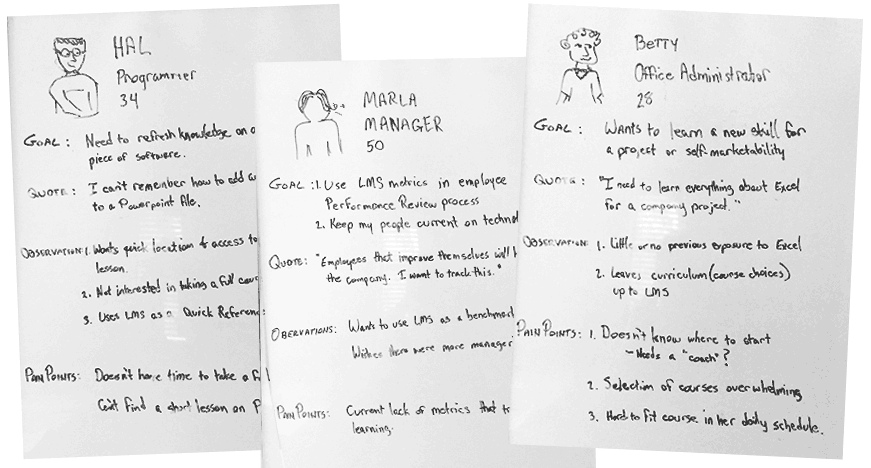 HAL
Programmer
34
GOAL: Need to refresh knowledge on a
piece of software.
QUOTE: I can't remember how to add a
to a Powerpoint file.
OBSERVATION: 1. Wants quick location & access to
lesson.
2. Not interested in taking a full cour
3. Uses LMS as a Quick Referenc
PAIN POINTS: Doesn't have time to take a f
Can't find a short lesson on P
MARLA
MANAGER
50
GOAL: 1. Use LMS metrics in employee
Performance Review process
2. Keep my people current on technol
QUOTE: "Employees that improve themselves will
the company. I want to track this."
OBERVATIONS: Wants to use LMS as a benchmark
Wishes there were more manager
PAIN POINTS: Current lack of metrics that tr
learning.
BETTY
Office Administrator
28
GOAL: Wants to learn a new skill for
a project or self-marketability
QUOTE: "I need to learn everything about Excel
for a company project."
OBSERVATION: 1. Little or no previous exposure to Excel
2. Leaves curriculum (course choices)
up to LMS
PAIN POINTS: 1. Doesn't know where to start
- Needs a "coach"?
2. Selection of courses overwhelming
3. Hard to fit course in her daily schedule.